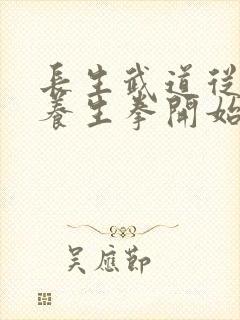 長生武道從
養生拳開始
吴應節